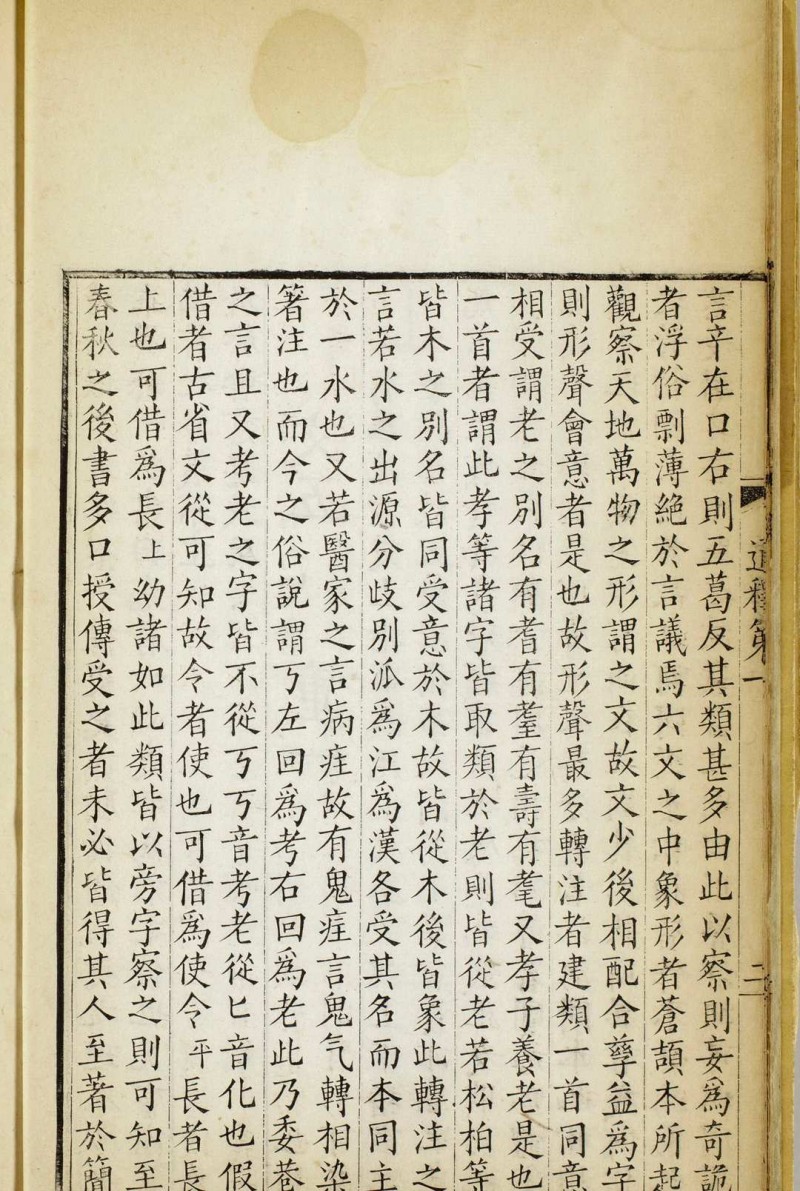 通釋第一
二
言䇂在口右則五葛反其類甚多由此以察則妄爲奇詭
者浮俗剽薄絕於言議焉六文之中象形者蒼頡本所起
觀察天地萬物之形謂之文故文少後相配合孳益爲字
則形聲會意者是也故形聲最多轉注者建類一首同意
相受謂老之別名有耆有耋有壽有耄又孝子養老是也
一首者謂此孝等諸字皆取類於老則皆從老若松柏等
皆木之別名皆同受意於木故皆從木後皆象此轉注之
言若水之出源分歧別派爲江爲漢各受其名而本同主
於一水也又若醫家之言病疰故有鬼疰言鬼气轉相染
箸注也而今之俗說謂丂左回爲考右回爲老此乃委巷
之言且又考老之字皆不從丂丂音考老從匕音化也假
借者古省文從可知故令者使也可借爲使令平長者長
上也可借爲長上幼諸如此類皆以旁字察之則可知至
春秋之後書多口授傳受之者未必皆得其人至著於簡